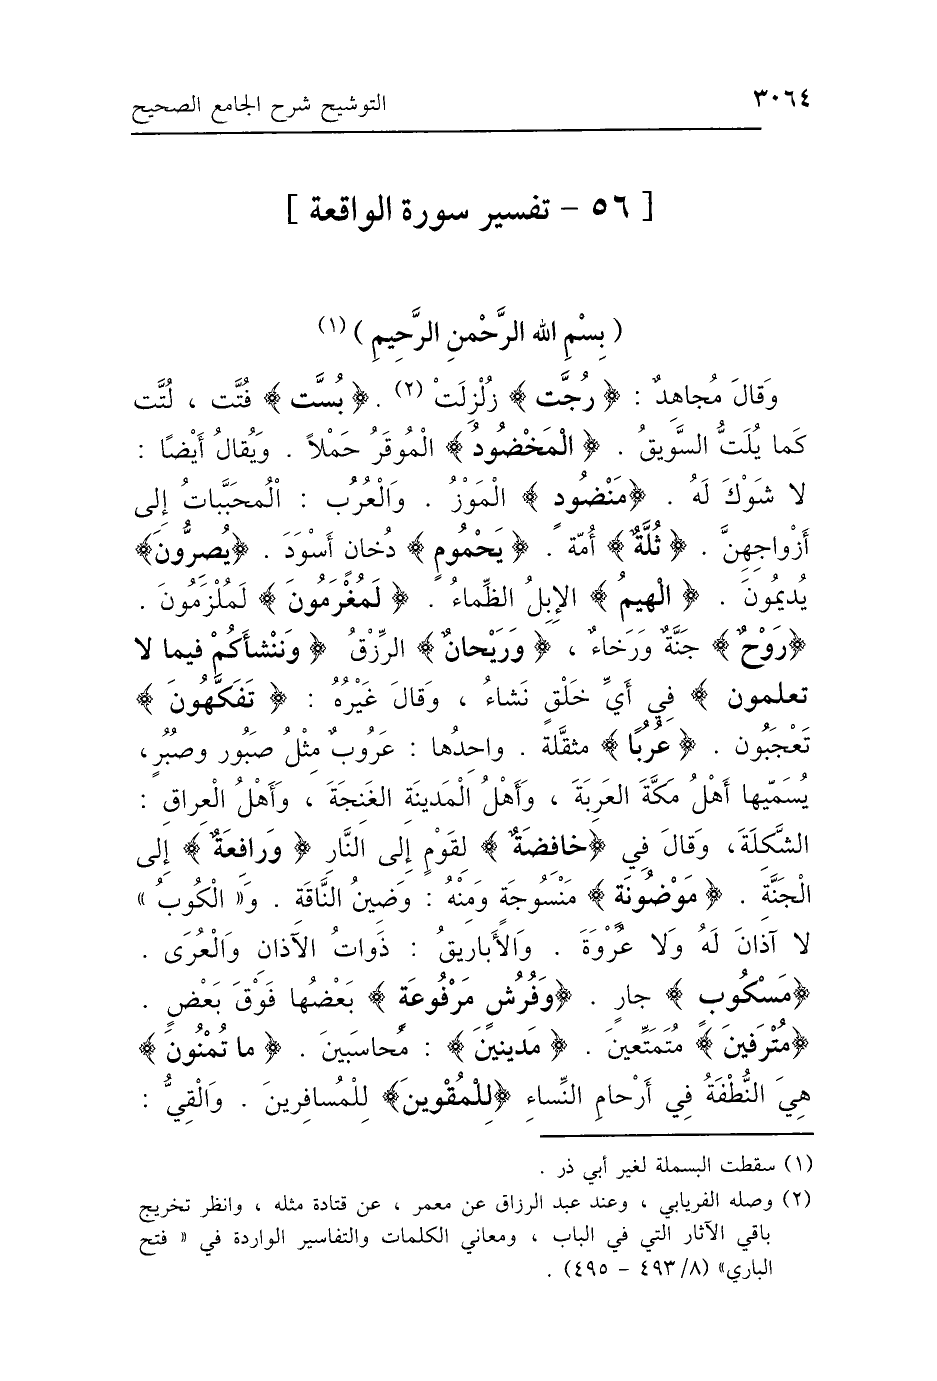 ٣٠٦٤
التوشيح شرح الجامع الصحيح
[ ٥٦ - تفسير سورة الواقعة ]
( بِسْمِ الله الرَّحْمنِ الرَّحِيمِ ) (١)
وَقالَ مُجاهِدٌ : ﴿ رُجَّت ﴾ زُلْزِلَتْ (٢) . ﴿ بُسَّت ﴾ فُتَّت ، لُتَّت
كَما يُلَتُّ السَّوِيقُ . ﴿ الْمَخْضُودُ ﴾ الْمُوقَرُ حَمْلاً . ويُقالُ أَيْضًا :
لا شَوْكَ لَهُ . ﴿مَنْضُود ﴾ الْمَوْزُ . وَالْعُرُب : الْمحَبَّباتُ إلى
أَزْواجِهِنَّ . ﴿ ثُلَّةٌ ﴾ أُمَّة . ﴿ يَحْمُومٍ ﴾ دُخانٍ أَسْوَدَ . ﴿يُصِرُّونَ﴾
يُدِيمُونَ . ﴿ الْهِيمُ ﴾ الإبِلُ الظِّماءُ . ﴿ لَمُغْرَمُونَ ﴾ لَمُلْزَمُونَ .
﴿رَوْحٌ ﴾ جَنَّةٌ وَرَخاءٌ ، ﴿ وَرَيْحانٌ ﴾ الرِّزْقُ ﴿ وَنَنْشأكُمْ فيما لا
تعلمون ﴾ فِي أَيِّ خَلْقٍ نَشاءُ ، وَقالَ غَيْرُهُ : ﴿ تَفَكَّهُونَ ﴾
تَعْجَبُون . ﴿ عُرُبًا ﴾ مثقَّلة . واحِدُها : عَرُوبٌ مثْلُ صَبُور وصبُرٍ،
يُسَمّيها أهْلُ مَكَّةَ العَرِبَةَ ، وَأَهْلُ الْمَدينَةِ الغَنِجَةَ ، وَأَهْلُ الْعِراقِ :
الشَّكِلَةَ، وَقالَ فِي ﴿خافضَةٌ ﴾ لقَوْمٍ إلى النَّارِ ﴿ وَرافِعَةٌ ﴾ إلى
الْجَنَّةِ . ﴿ مَوْضُونَة ﴾ مَنْسُوجَة وَمنْهُ : وَضِينُ النَّاقَةِ . وَ« الْكُوبُ »
لا آذانَ لَهُ وَلا عُرْوَةَ . وَالأَباريقُ : ذَواتُ الآذانِ وَالْعُرَى .
﴿مَسْكُوبٍ ﴾ جارٍ . ﴿وَفُرُشٍ مَرْفُوعَة ﴾ بَعْضُها فَوْقَ بَعْضٍ .
﴿مُتْرَفينَ ﴾ مُتَمَتِّعينَ . ﴿ مَدينِينَ ﴾ : مُحاسَبينَ . ﴿ ما تُمْنُونَ ﴾
هِيَ النُّطْفَةُ فِي أَرْحامِ النِّساءِ ﴿لِلْمُقْوِينَ﴾ لِلْمُسافرينَ . وَالْقِيُّ :
(١) سقطت البسملة لغير أبي ذر .
(٢) وصله الفريابي ، وعند عبد الرزاق عن معمر ، عن قتادة مثله ، وانظر تخريج
باقي الآثار التي في الباب ، ومعاني الكلمات والتفاسير الواردة في « فتح
الباري» (٨/ ٤٩٣ - ٤٩٥) .